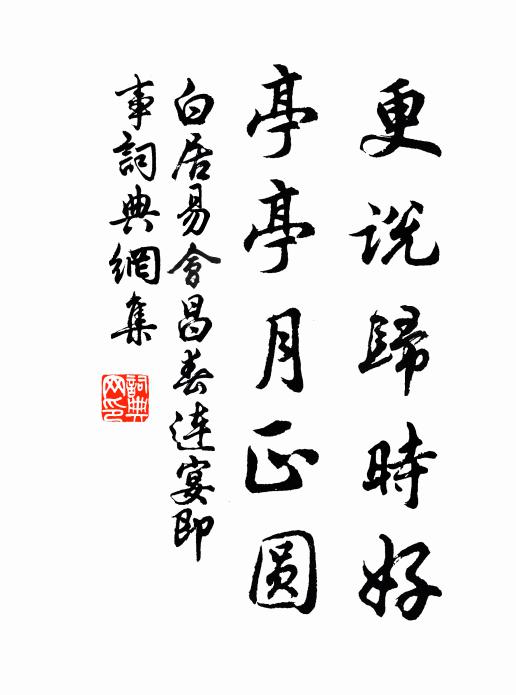 更說歸時好
亭亭月正圓
白居易會昌春連宴即
事詞典網集
詞典
网印